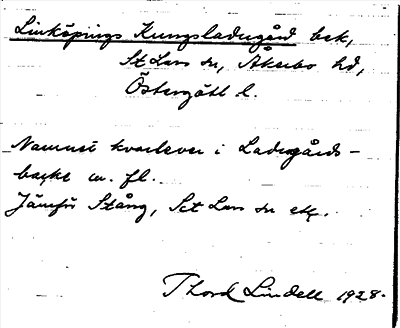 Linköpings Kungsladugård bek,
St Lars sn, Åkerbo hd,
Östergötl l.
Namnet kvarlever i Ladugårds-
backe m. fl.
Jämför Stång, Sct Lars sn etc.
Thord Lindell 1928.